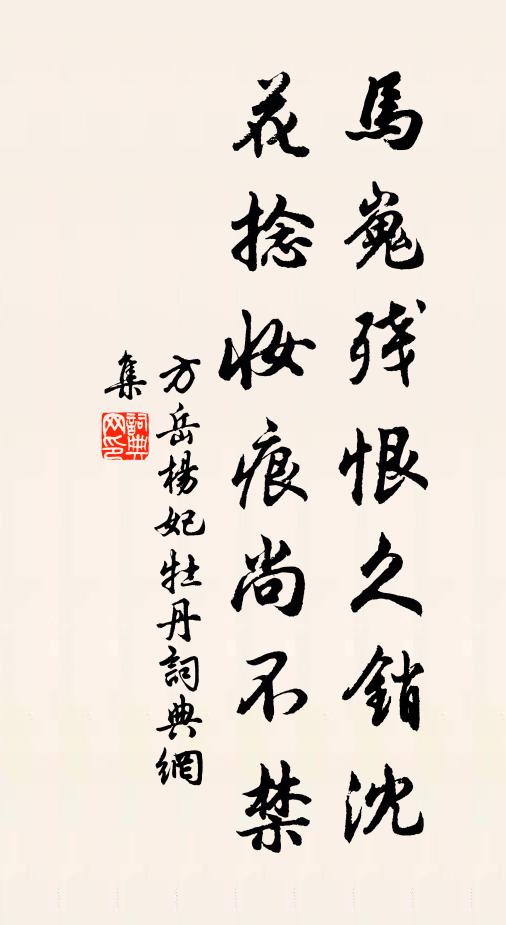 馬嵬残恨久銷沈
花捻妝痕尚不禁
方岳楊妃牡丹詞典網
集
詞典網印